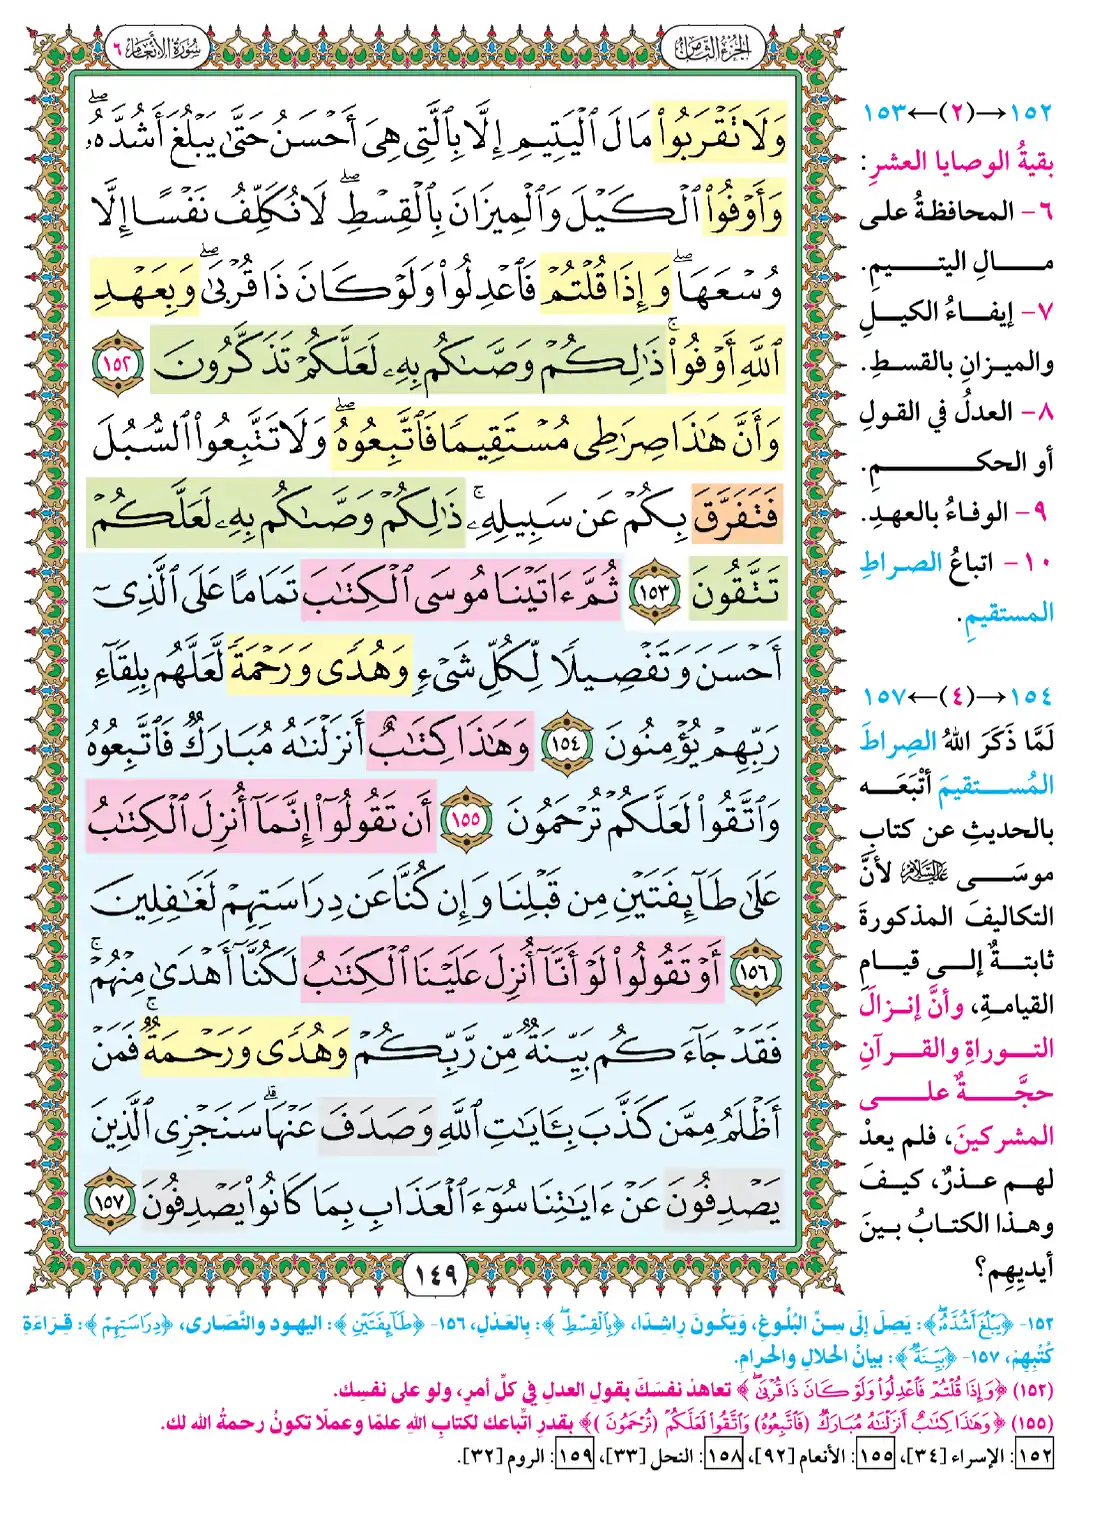 الجزء الثامن
سورة الأنعام ٦
وَلَا تَقْرَبُوا۟ مَالَ ٱلْيَتِيمِ إِلَّا بِٱلَّتِى هِىَ أَحْسَنُ حَتَّىٰ يَبْلُغَ أَشُدَّهُۥۖ
وَأَوْفُوا۟ ٱلْكَيْلَ وَٱلْمِيزَانَ بِٱلْقِسْطِۖ لَا نُكَلِّفُ نَفْسًا إِلَّا
وُسْعَهَاۖ وَإِذَا قُلْتُمْ فَٱعْدِلُوا۟ وَلَوْ كَانَ ذَا قُرْبَىٰۖ وَبِعَهْدِ
ٱللَّهِ أَوْفُوا۟ۚ ذَٰلِكُمْ وَصَّىٰكُم بِهِۦ لَعَلَّكُمْ تَذَكَّرُونَ ١٥٢
وَأَنَّ هَٰذَا صِرَٰطِى مُسْتَقِيمًا فَٱتَّبِعُوهُۖ وَلَا تَتَّبِعُوا۟ ٱلسُّبُلَ
فَتَفَرَّقَ بِكُمْ عَن سَبِيلِهِۦۚ ذَٰلِكُمْ وَصَّىٰكُم بِهِۦ لَعَلَّكُمْ
تَتَّقُونَ ١٥٣ ثُمَّ ءَاتَيْنَا مُوسَى ٱلْكِتَٰبَ تَمَامًا عَلَى ٱلَّذِىٓ
أَحْسَنَ وَتَفْصِيلًا لِّكُلِّ شَىْءٍ وَهُدًى وَرَحْمَةً لَّعَلَّهُم بِلِقَآءِ
رَبِّهِمْ يُؤْمِنُونَ ١٥٤ وَهَٰذَا كِتَٰبٌ أَنزَلْنَٰهُ مُبَارَكٌ فَٱتَّبِعُوهُ
وَٱتَّقُوا۟ لَعَلَّكُمْ تُرْحَمُونَ ١٥٥ أَن تَقُولُوٓا۟ إِنَّمَآ أُنزِلَ ٱلْكِتَٰبُ
عَلَىٰ طَآئِفَتَيْنِ مِن قَبْلِنَا وَإِن كُنَّا عَن دِرَاسَتِهِمْ لَغَٰفِلِينَ
١٥٦ أَوْ تَقُولُوا۟ لَوْ أَنَّآ أُنزِلَ عَلَيْنَا ٱلْكِتَٰبُ لَكُنَّآ أَهْدَىٰ مِنْهُمْۚ
فَقَدْ جَآءَكُم بَيِّنَةٌ مِّن رَّبِّكُمْ وَهُدًى وَرَحْمَةٌۚ فَمَنْ
أَظْلَمُ مِمَّن كَذَّبَ بِـَٔايَٰتِ ٱللَّهِ وَصَدَفَ عَنْهَاۗ سَنَجْزِى ٱلَّذِينَ
يَصْدِفُونَ عَنْ ءَايَٰتِنَا سُوٓءَ ٱلْعَذَابِ بِمَا كَانُوا۟ يَصْدِفُونَ ١٥٧
١٤٩
١٥٢→(٢)←١٥٣
بقيةُ الوصايا العشرِ:
٦- المحافظةُ على
مالِ اليتيمِ.
٧- إيفاءُ الكيلِ
والميزانِ بالقسطِ.
٨- العدلُ في القولِ
أو الحكمِ.
٩- الوفاءُ بالعهدِ.
١٠- اتباعُ الصراطِ
المستقيمِ.
١٥٤→(٤)←١٥٧
لَمَّا ذَكَرَ اللهُ الصِراطَ
المُستقيمَ أتْبَعَه
بالحديثِ عن كتابِ
موسَى عليه السلام لأنَّ
التكاليفَ المذكورةَ
ثابتةٌ إلى قيامِ
القيامةِ، وأنَّ إنزالَ
التوراةِ والقرآنِ
حجَّةٌ على
المشركينَ، فلم يعدْ
لهم عذرٌ، كيفَ
وهذا الكتابُ بينَ
أيديهِم؟
١٥٢- ﴿يَبْلُغَ أَشُدَّهُۥۖ﴾: يَصِلَ إلى سِنِّ البُلُوغِ، وَيَكُونَ رَاشِدًا، ﴿بِٱلْقِسْطِۖ﴾: بِالعَدْلِ، ١٥٦- ﴿طَآئِفَتَيْنِ﴾: اليهود والنَّصَارى، ﴿دِرَاسَتِهِمْ﴾: قِرَاءَةِ
كُتُبِهِمْ، ١٥٧- ﴿بَيِّنَةٌ﴾: بيانٌ للحلالِ والحرامِ.
(١٥٢) ﴿وَإِذَا قُلْتُمْ فَٱعْدِلُوا۟ وَلَوْ كَانَ ذَا قُرْبَىٰۖ﴾ تعاهدْ نفسَكَ بقولِ العدلِ في كلِّ أمرٍ، ولو على نفسِك.
(١٥٥) ﴿وَهَٰذَا كِتَٰبٌ أَنزَلْنَٰهُ مُبَارَكٌ (فَٱتَّبِعُوهُ) وَٱتَّقُوا۟ لَعَلَّكُمْ (تُرْحَمُونَ)﴾ بقدرِ اتِّباعك لكتابِ اللهِ علمًا وعملًا تكونُ رحمةُ الله لك.
١٥٢: الإسراء [٣٤]، ١٥٥: الأنعام [٩٢]، ١٥٨: النحل [٣٣]، ١٥٩: الروم [٣٢].